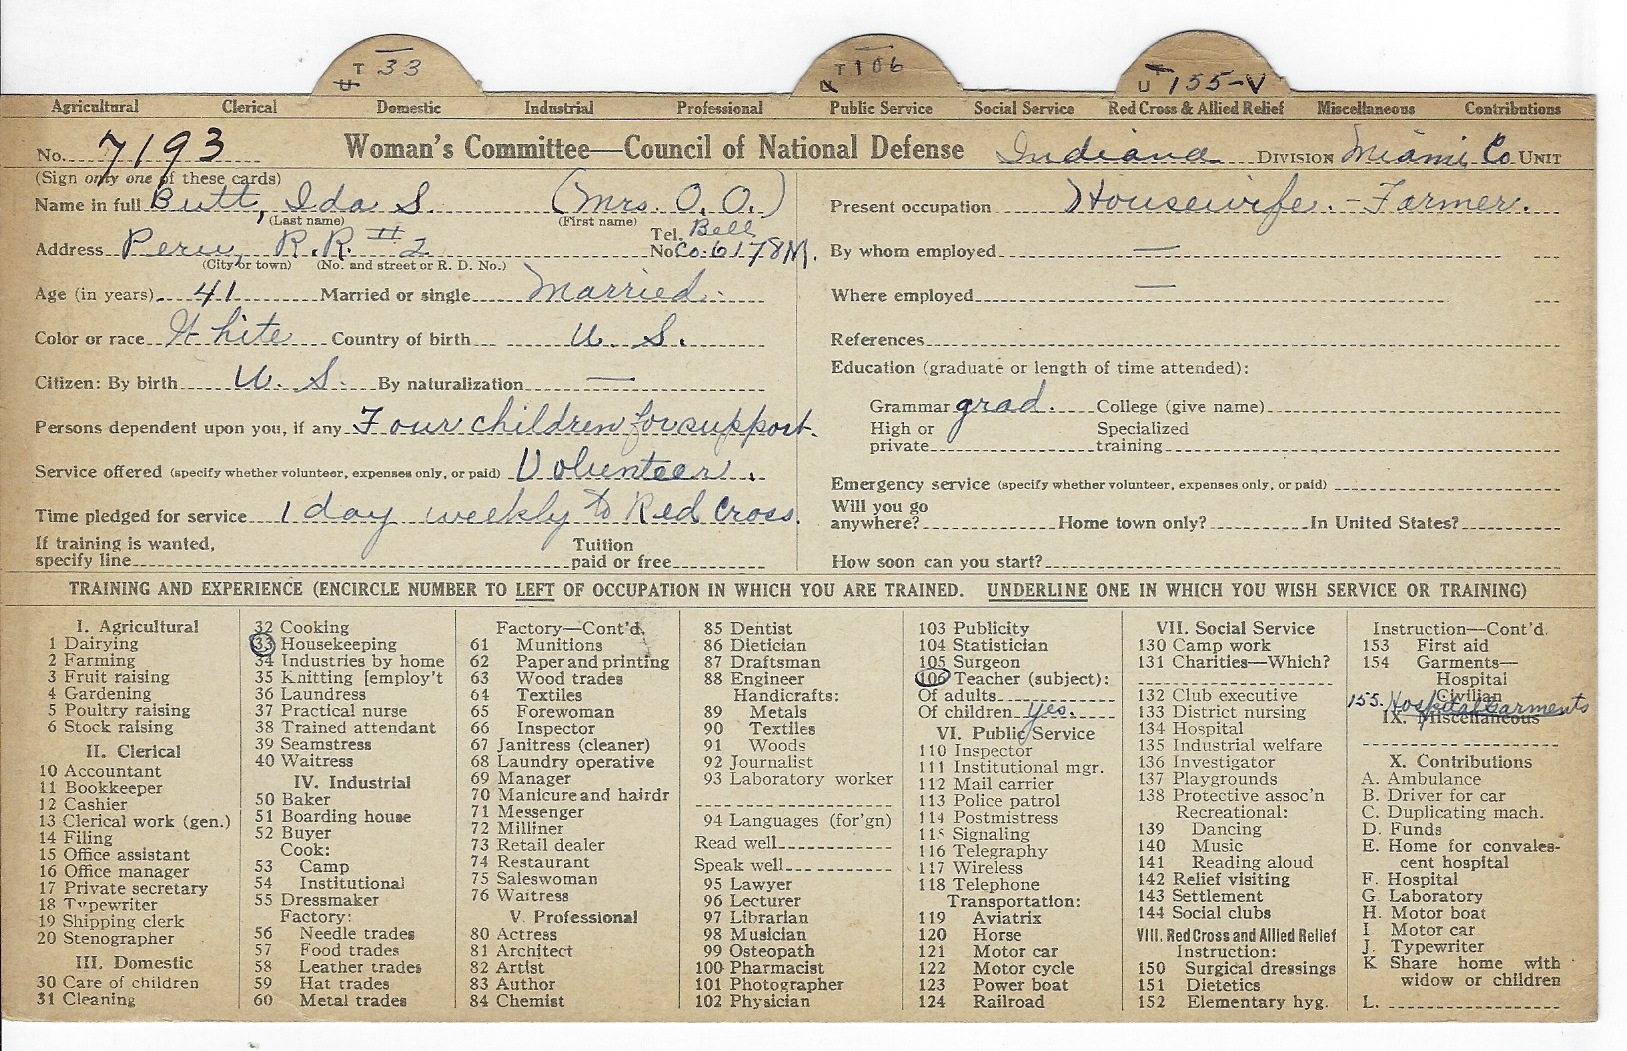 T 33
U
T 106
U T 155-V
Agricultural Clerical Domestic Industrial Professional Public Service Social Service Red Cross & Allied Relief Miscellaneous Contributions
No. 7193 Woman's Committee—Council of National Defense Indiana DIVISION Miami Co UNIT
(Sign only one of these cards)
Name in full Butt, Ida S. (Mrs. O. O.)
(Last name) (First name)
Tel. Bell
Address Peru, R.R. #2 No Co. 6178M.
(City or town) (No. and street or R. D. No.)
Age (in years) 41 Married or single Married.
Color or race White Country of birth U. S.
Citizen: By birth U. S. By naturalization —
Persons dependent upon you, if any Four children for support.
Service offered (specify whether volunteer, expenses only, or paid) Volunteer.
Time pledged for service 1 day weekly to Red Cross.
If training is wanted, Tuition
specify line paid or free
Present occupation Housewife. - Farmer.
By whom employed —
Where employed —
References
Education (graduate or length of time attended):
Grammar grad. College (give name)
High or Specialized
private training
Emergency service (specify whether volunteer, expenses only, or paid)
Will you go
anywhere? Home town only? In United States?
How soon can you start?
TRAINING AND EXPERIENCE (ENCIRCLE NUMBER TO LEFT OF OCCUPATION IN WHICH YOU ARE TRAINED. UNDERLINE ONE IN WHICH YOU WISH SERVICE OR TRAINING)
I. Agricultural
1 Dairying
2 Farming
3 Fruit raising
4 Gardening
5 Poultry raising
6 Stock raising
II. Clerical
10 Accountant
11 Bookkeeper
12 Cashier
13 Clerical work (gen.)
14 Filing
15 Office assistant
16 Office manager
17 Private secretary
18 Typewriter
19 Shipping clerk
20 Stenographer
III. Domestic
30 Care of children
31 Cleaning
32 Cooking
33 Housekeeping
34 Industries by home
35 Knitting [employ't
36 Laundress
37 Practical nurse
38 Trained attendant
39 Seamstress
40 Waitress
IV. Industrial
50 Baker
51 Boarding house
52 Buyer
Cook:
53 Camp
54 Institutional
55 Dressmaker
Factory:
56 Needle trades
57 Food trades
58 Leather trades
59 Hat trades
60 Metal trades
Factory—Cont'd.
61 Munitions
62 Paper and printing
63 Wood trades
64 Textiles
65 Forewoman
66 Inspector
67 Janitress (cleaner)
68 Laundry operative
69 Manager
70 Manicure and hairdr
71 Messenger
72 Milliner
73 Retail dealer
74 Restaurant
75 Saleswoman
76 Waitress
V. Professional
80 Actress
81 Architect
82 Artist
83 Author
84 Chemist
85 Dentist
86 Dietician
87 Draftsman
88 Engineer
Handicrafts:
89 Metals
90 Textiles
91 Woods
92 Journalist
93 Laboratory worker
94 Languages (for'gn)
Read well
Speak well
95 Lawyer
96 Lecturer
97 Librarian
98 Musician
99 Osteopath
100 Pharmacist
101 Photographer
102 Physician
103 Publicity
104 Statistician
105 Surgeon
106 Teacher (subject):
Of adults
Of children yes.
VI. Public Service
110 Inspector
111 Institutional mgr.
112 Mail carrier
113 Police patrol
114 Postmistress
115 Signaling
116 Telegraphy
117 Wireless
118 Telephone
Transportation:
119 Aviatrix
120 Horse
121 Motor car
122 Motor cycle
123 Power boat
124 Railroad
VII. Social Service
130 Camp work
131 Charities—Which?
132 Club executive
133 District nursing
134 Hospital
135 Industrial welfare
136 Investigator
137 Playgrounds
138 Protective assoc'n
Recreational:
139 Dancing
140 Music
141 Reading aloud
142 Relief visiting
143 Settlement
144 Social clubs
VIII. Red Cross and Allied Relief
Instruction:
150 Surgical dressings
151 Dietetics
152 Elementary hyg.
Instruction—Cont'd.
153 First aid
154 Garments—
Hospital
Civilian
155. Hospital Garments
IX. Miscellaneous
X. Contributions
A. Ambulance
B. Driver for car
C. Duplicating mach.
D. Funds
E. Home for convales-
cent hospital
F. Hospital
G. Laboratory
H. Motor boat
I Motor car
J. Typewriter
K Share home with
widow or children
L.